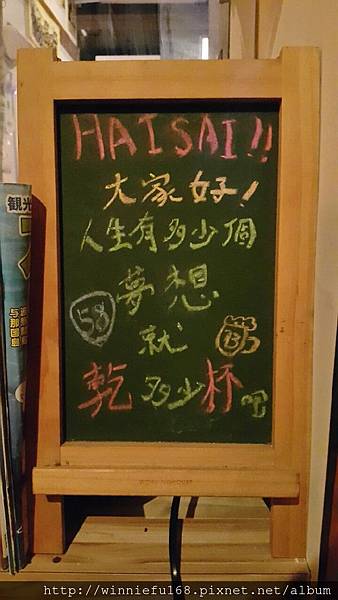 HAISAI!!
大家好!
人生有多少個
夢想
58
就
B
乾多少杯吧
観光
与那国島
http://winniefu168.pixnet.net/album